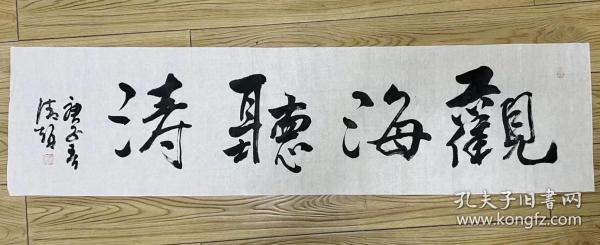 觀海聽濤
庚子春
孔夫子旧书网
www.kongfz.com